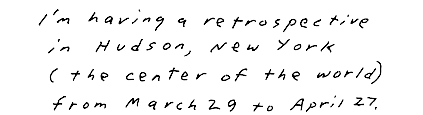 I'm having a retrospective
in Hudson, New York
(the center of the world)
from March 29 to April 27.